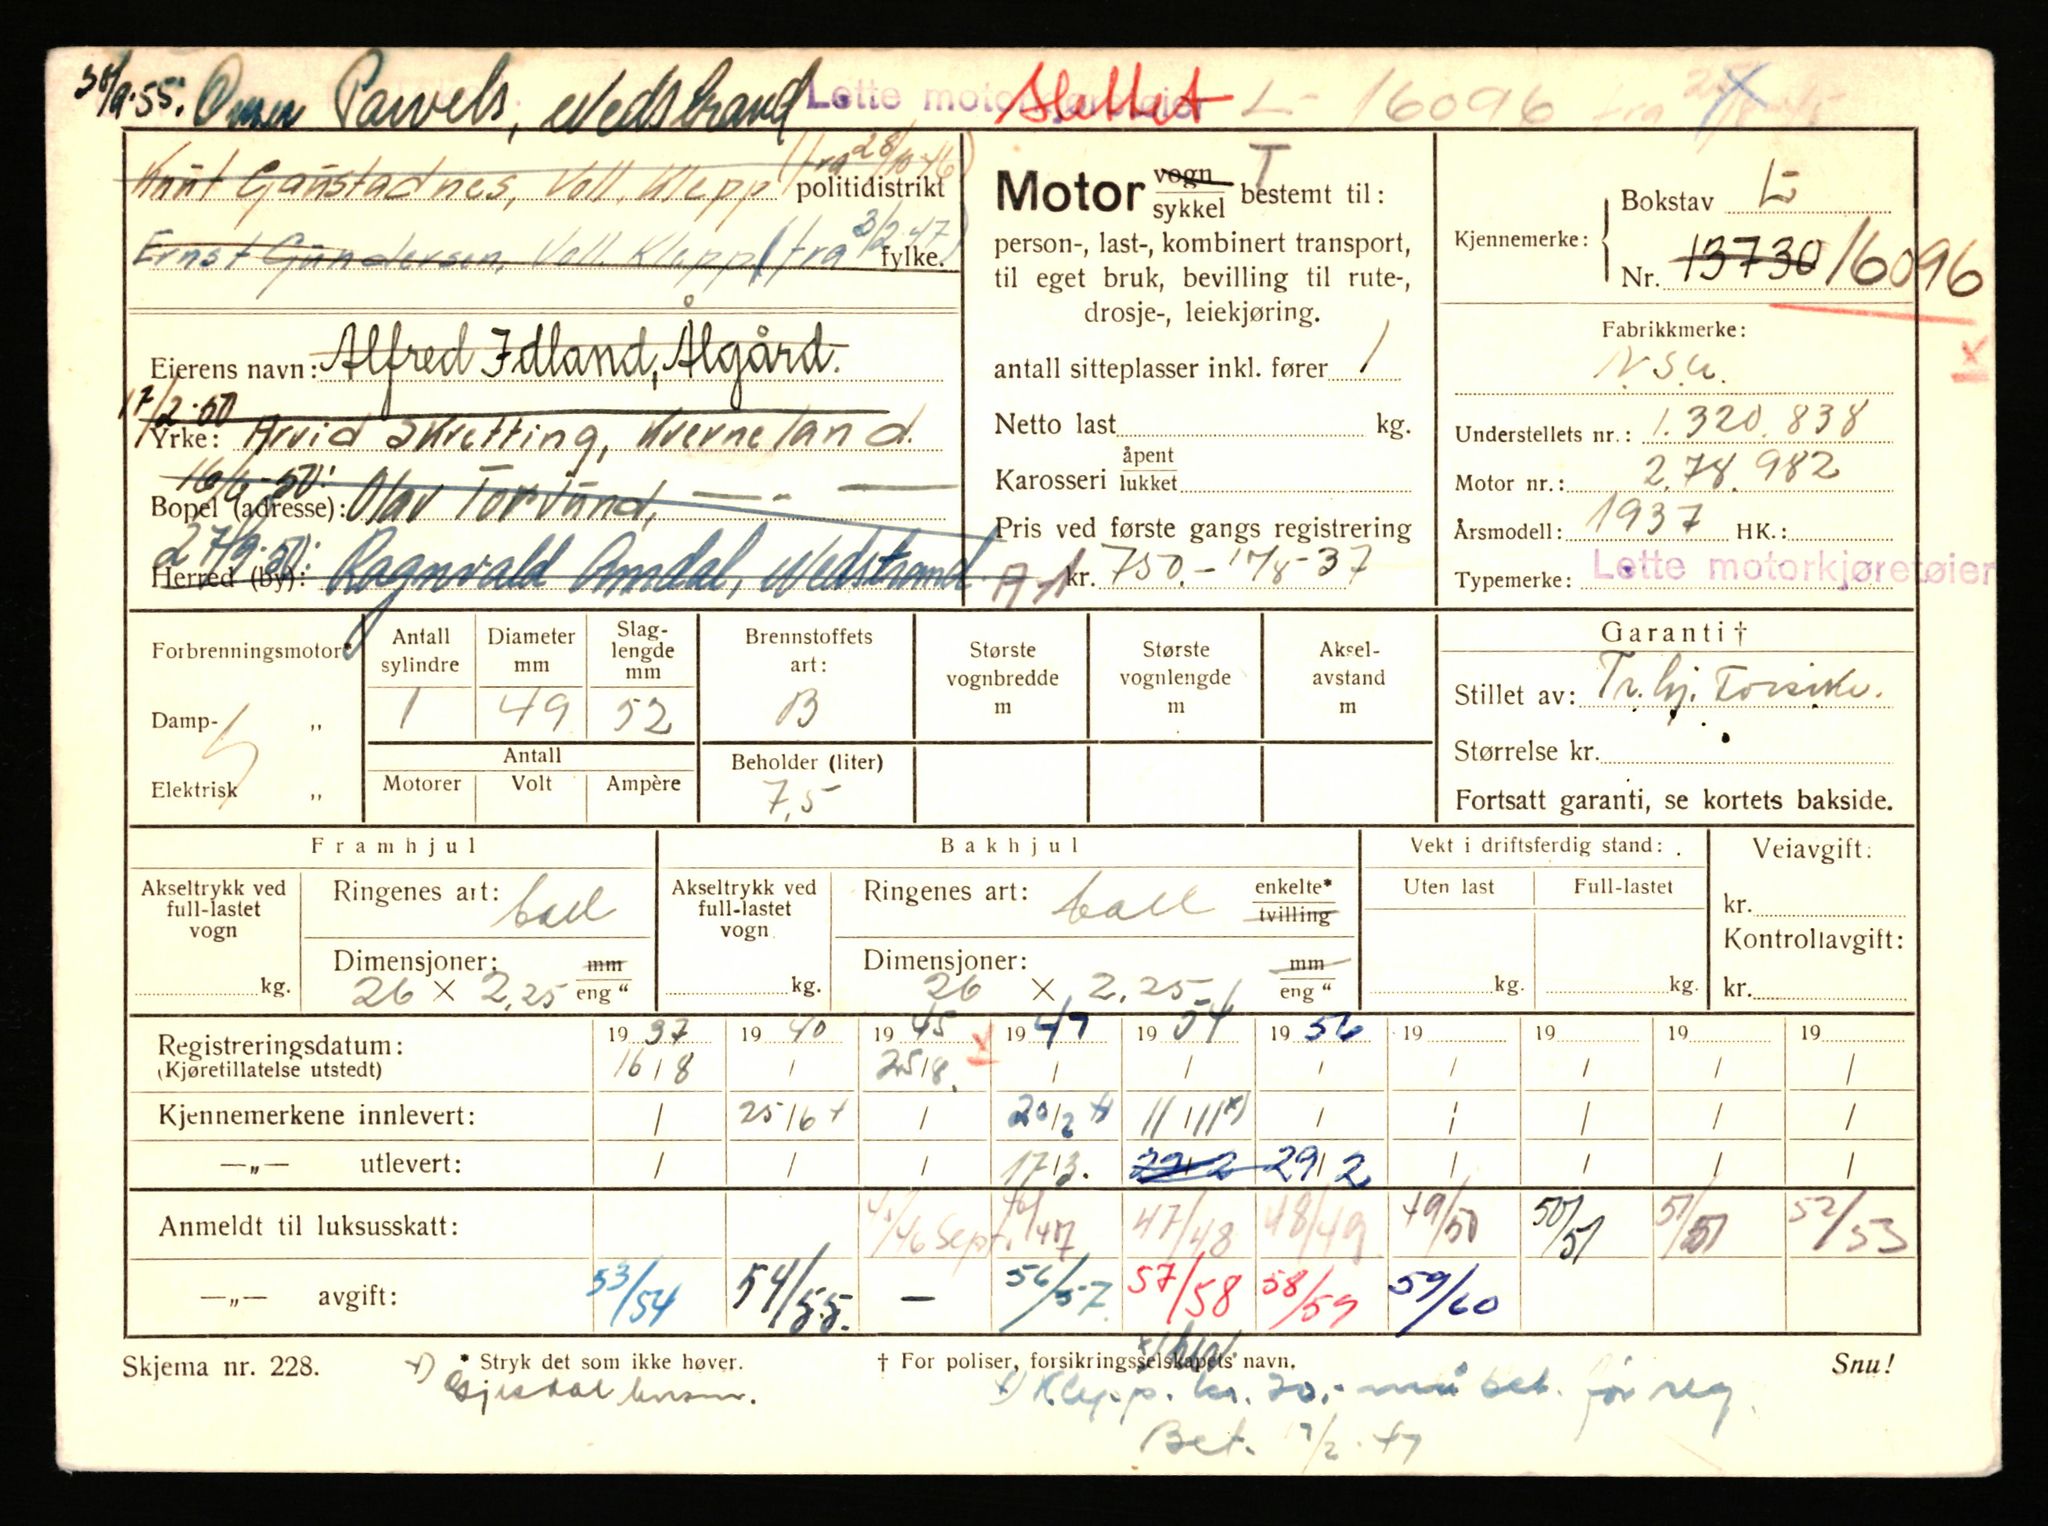 30/9-55. Omer Pawels, Nedstrand Lette motorkjøretøier Slettet L- 16096 fra
Knut Gaustadnes, Voll, Klepp (fra 28/10-46) politidistrikt
Ernst Gundersen, Voll. Klepp (fra 3/2-47) fylke.
Eierens navn: Alfred Idland, Ålgård.
17/2-50
Yrke: Arvid Skretting, Kverneland.
16/9-50:
Bopel (adresse): Olav Torvund, — „ —
27/9-50:
Herred (by): Ragnvald Amdal, Nedstrand.
Motor vogn/sykkel bestemt til: T
person-, last-, kombinert transport,
til eget bruk, bevilling til rute-,
drosje-, leiekjøring.
antall sitteplasser inkl. fører 1
Netto last kg.
Karosseri åpent/lukket
Pris ved første gangs registrering
kr. 750.- 17/8-37
Kjennemerke: Bokstav L
Nr. 13730 16096
Fabrikkmerke:
N.S.U.
Understellets nr.: 1.320.838
Motor nr.: 2.78.982
Årsmodell: 1937 HK.:
Typemerke: Lette motorkjøretøier
Forbrenningsmotor*
Damp- „
Elektrisk „
Antall sylindre 1
Diameter mm 49
Slag-lengde mm 52
Antall
Motorer Volt Ampère
Brennstoffets art: B
Beholder (liter) 7,5
Største vognbredde m
Største vognlengde m
Aksel-avstand m
Garanti †
Stillet av: Tr.hj. Forsikr.
Størrelse kr.
Fortsatt garanti, se kortets bakside.
Framhjul
Akseltrykk ved full-lastet vogn kg.
Ringenes art: ball
Dimensjoner: 26 × 2,25 mm/eng "
Bakhjul
Akseltrykk ved full-lastet vogn kg.
Ringenes art: ball enkelte*/tvilling
Dimensjoner: 26 × 2,25 mm/eng "
Vekt i driftsferdig stand:
Uten last kg. Full-lastet kg.
Veiavgift:
kr.
Kontrollavgift:
kr.
Registreringsdatum: 1937 1940 1945 1947 1954 1956 19 19 19 19
(Kjøretillatelse utstedt) 16/8 / 25/8. / / / / / / /
Kjennemerkene innlevert: / 25/6 + / 20/2 +) 11/11 x) / / / / /
—„— utlevert: / / / 17/3. 29/2 29/2 / / / /
Anmeldt til luksusskatt: /46 Sept. 46/47 47/48 48/49 49/50 50/51 51/51 52/53
—„— avgift: 53/54 54/55. — 56/57. 57/58 58/59 59/60
Skjema nr. 228. * Stryk det som ikke høver. † For poliser, forsikringsselskapets navn. Snu!
+) Gjestal lensm.
+) Klepp. kr. 20,- må bet. før reg.
Bet. 17/2-47